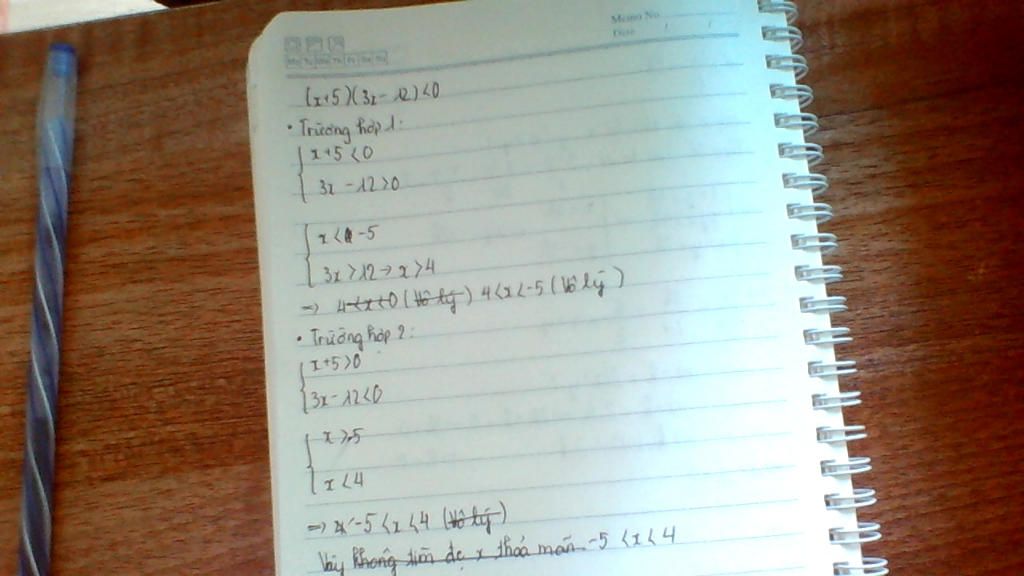 Memo No.
Date / /
Mo Tu We Th Fr Sa Su
(x+5)(3x-12)<0
• Trường hợp 1:
x+5<0
3x-12>0
x<-5
3x>12→x>4
=> 4<x<0 (Vô lý) 4<x<-5 (Vô lý)
• Trường hợp 2:
x+5>0
3x-12<0
x>-5
x<4
=> -5<x<4 (Vô lý)
Vậy không tìm đc x thoả mãn -5<x<4